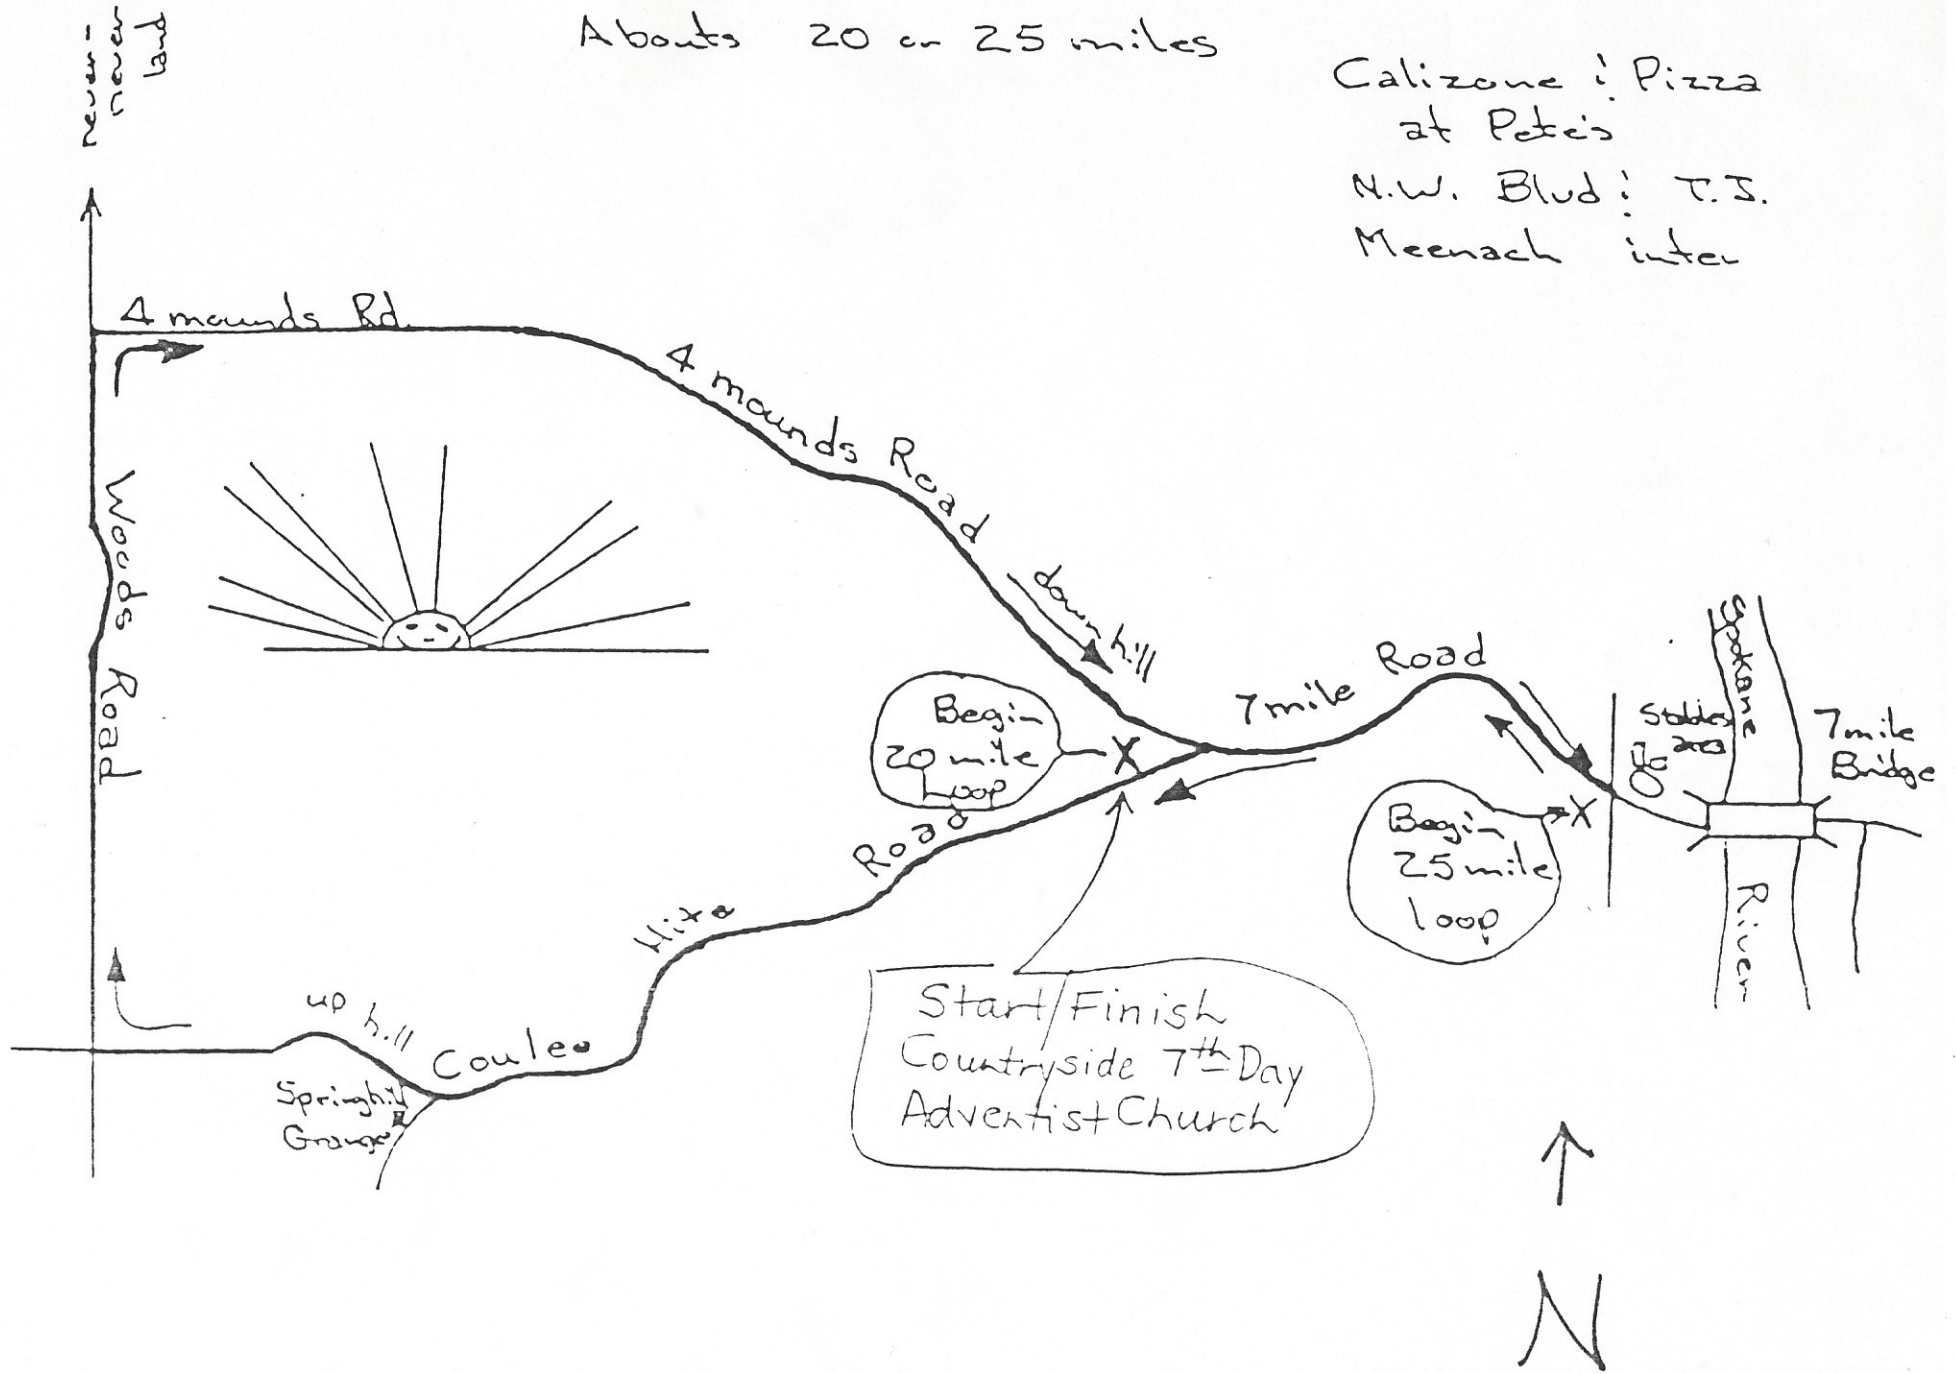 never-
never
land
Abouts 20 or 25 miles
Calizone & Pizza
at Pete's
N.W. Blvd & T.J.
Meenach inter
4 mounds Rd.
4 mounds Road
Woods Road
down hill
Begin
20 mile
Loop
7 mile Road
Stables
Spokane
River
7 mile
Bridge
Begin
25 mile
loop
Coulee Hite Road
up hill
Springhill
Grange
Start/Finish
Countryside 7th Day
Adventist Church
N